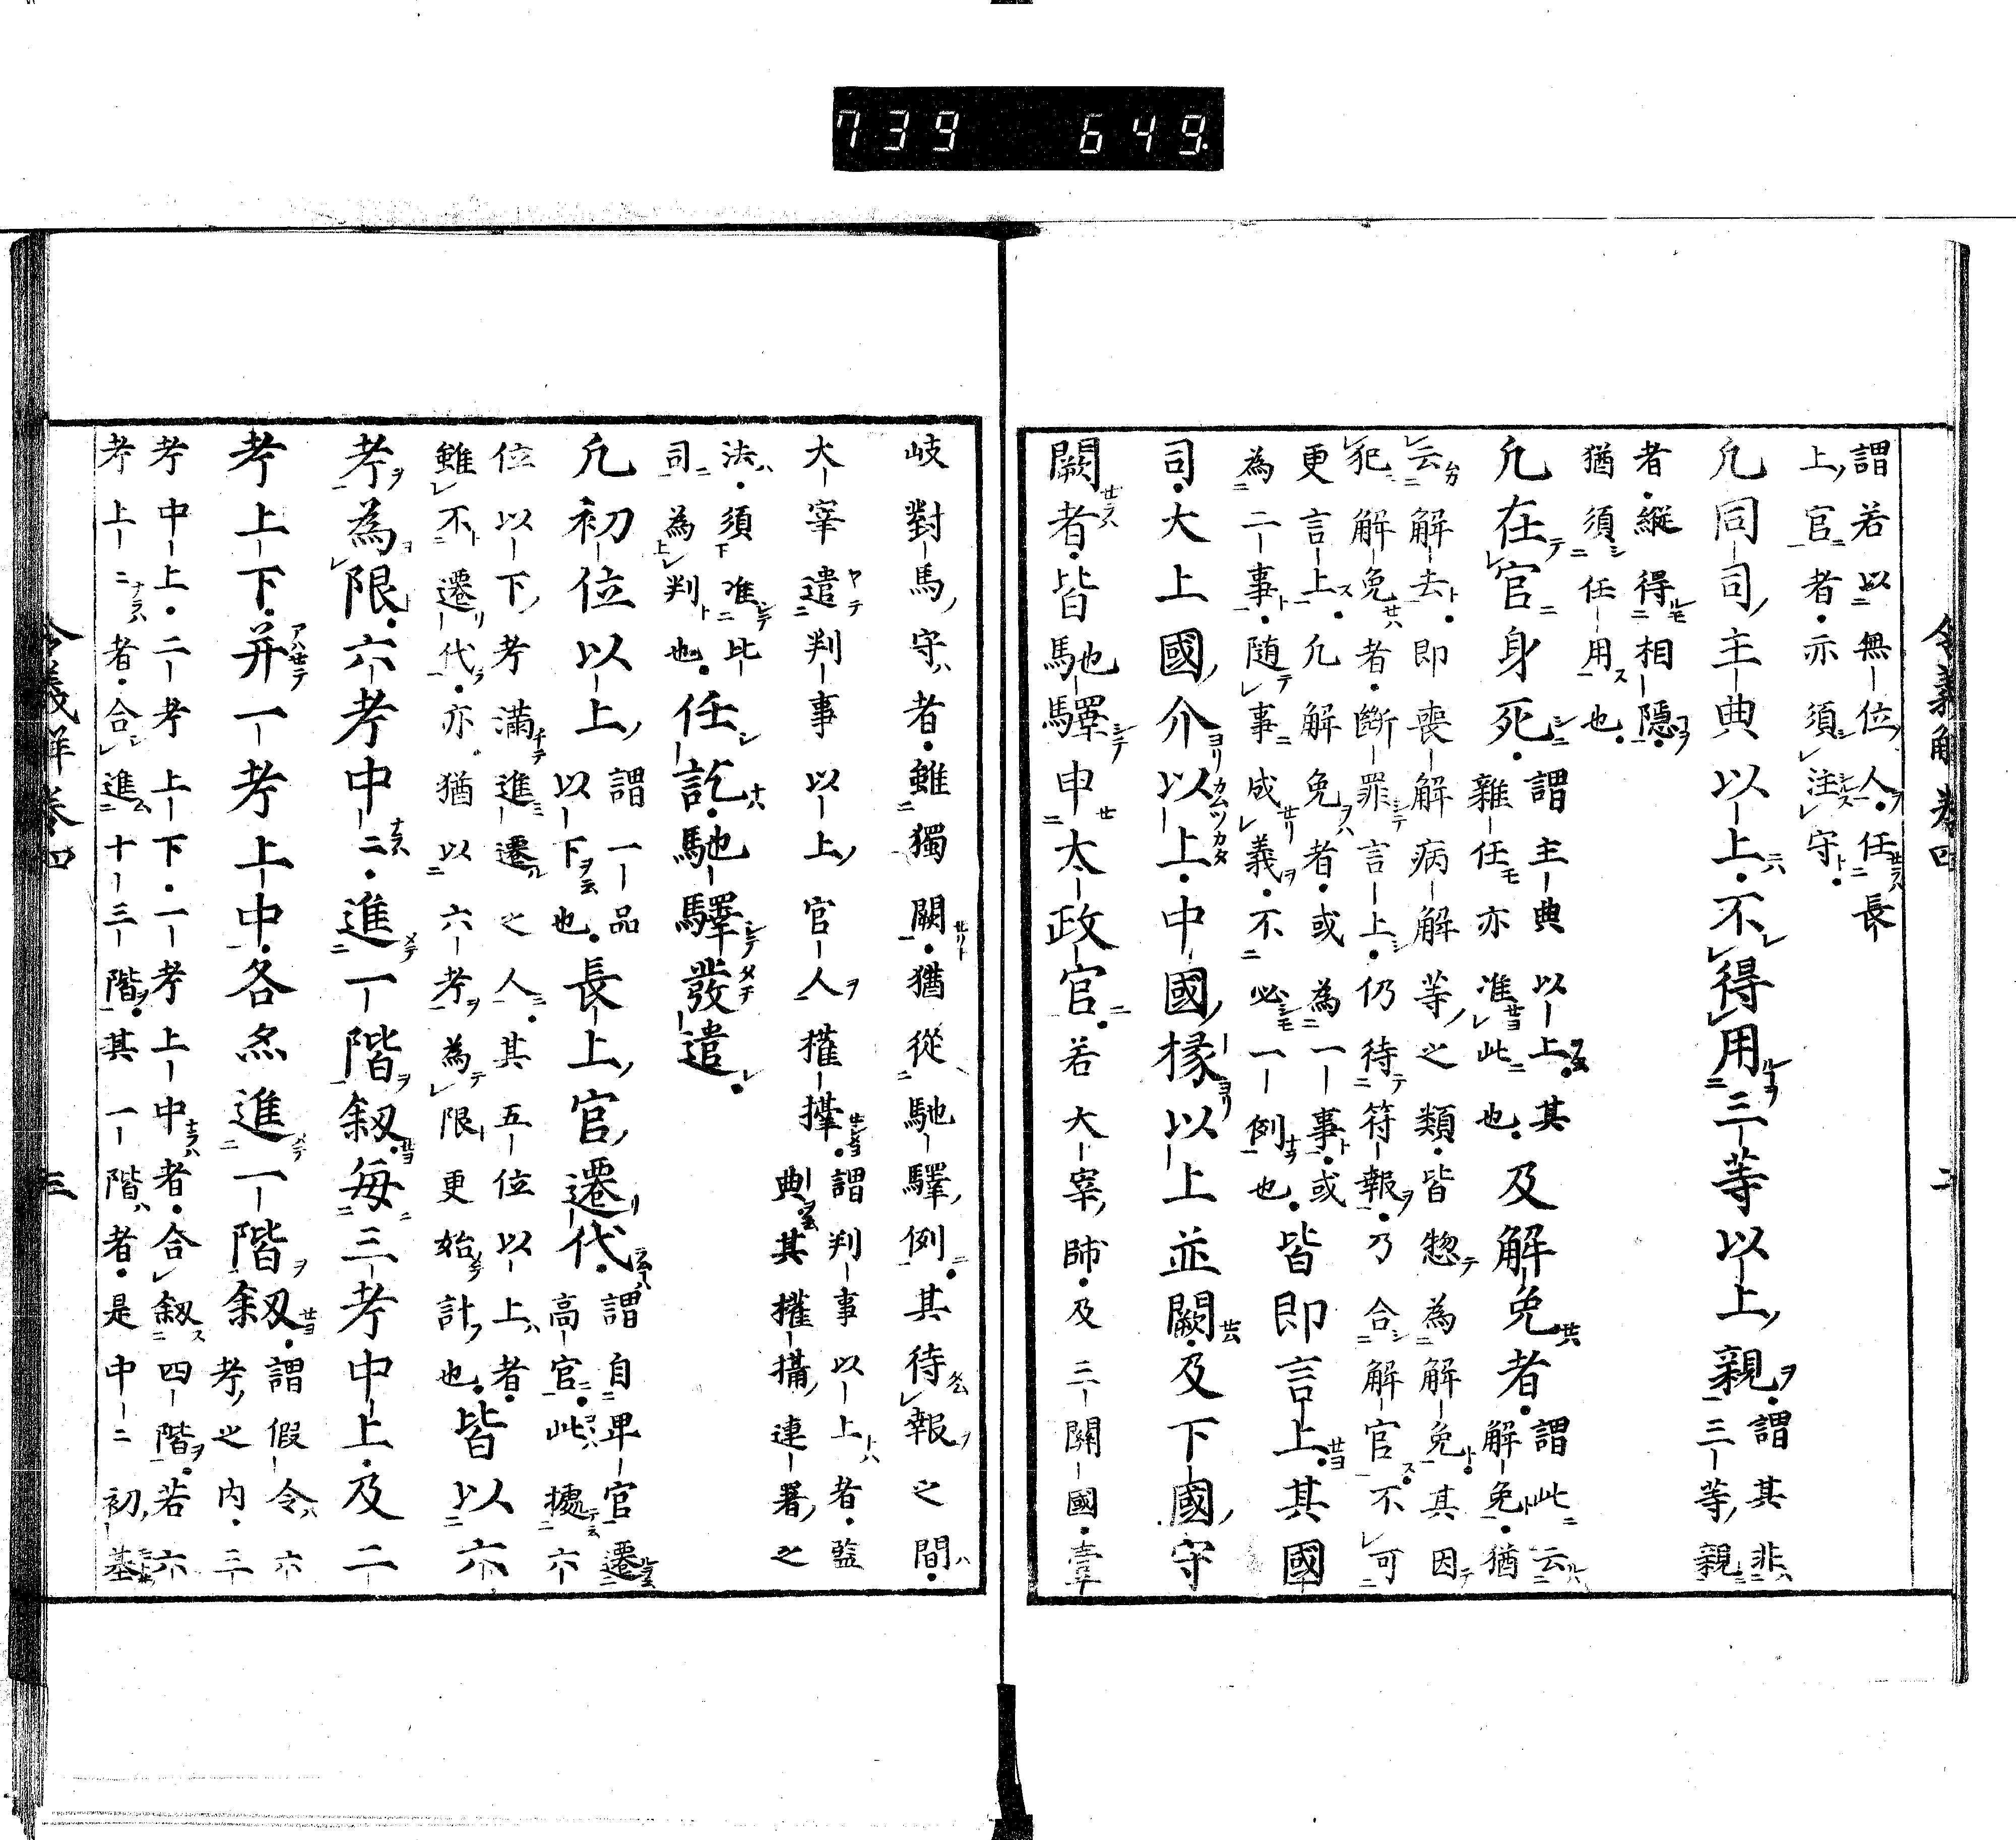 739 649
令義解卷四 二
謂若以無位人任長
上官者亦須注守
凡同司主典以上不得用三等以上親謂其非
三等親
者縱得相隱
猶須任用也
凡在官身死謂主典以上其
雜任亦准此也
及解免者謂此云
解免猶
云解去即喪解病解等之類皆惣為解免其因
犯解免者斷罪言上仍待符報乃合解官不可
更言上凡解免者或為一事或
為二事随事成義不必一例也
皆即言上其國
司大上國介以上中國掾以上並闕及下國守
闕者皆馳驛申太政官若大宰師及三關國壹
岐對馬守者雖獨闕猶從馳驛例其待報之間
大宰遣判事以上官人權攝謂判事以上者監
典其權攝連署之
法須准比
司為判也
任訖馳驛發遣
凡初位以上謂一品
以下也
長上官遷代謂自卑官遷
高官此據六
位以下考滿進遷之人其五位以上者
雖不遷代亦猶以六考為限更始計也
皆以六
考為限六考中二進一階叙每三考中上及二
考上下并一考上中各亦進一階叙謂假令六
考之内三
考中上二考上下一考上中者合叙四階若六
考上二者合進十三階其一階者是中二初基
令義解卷四 三